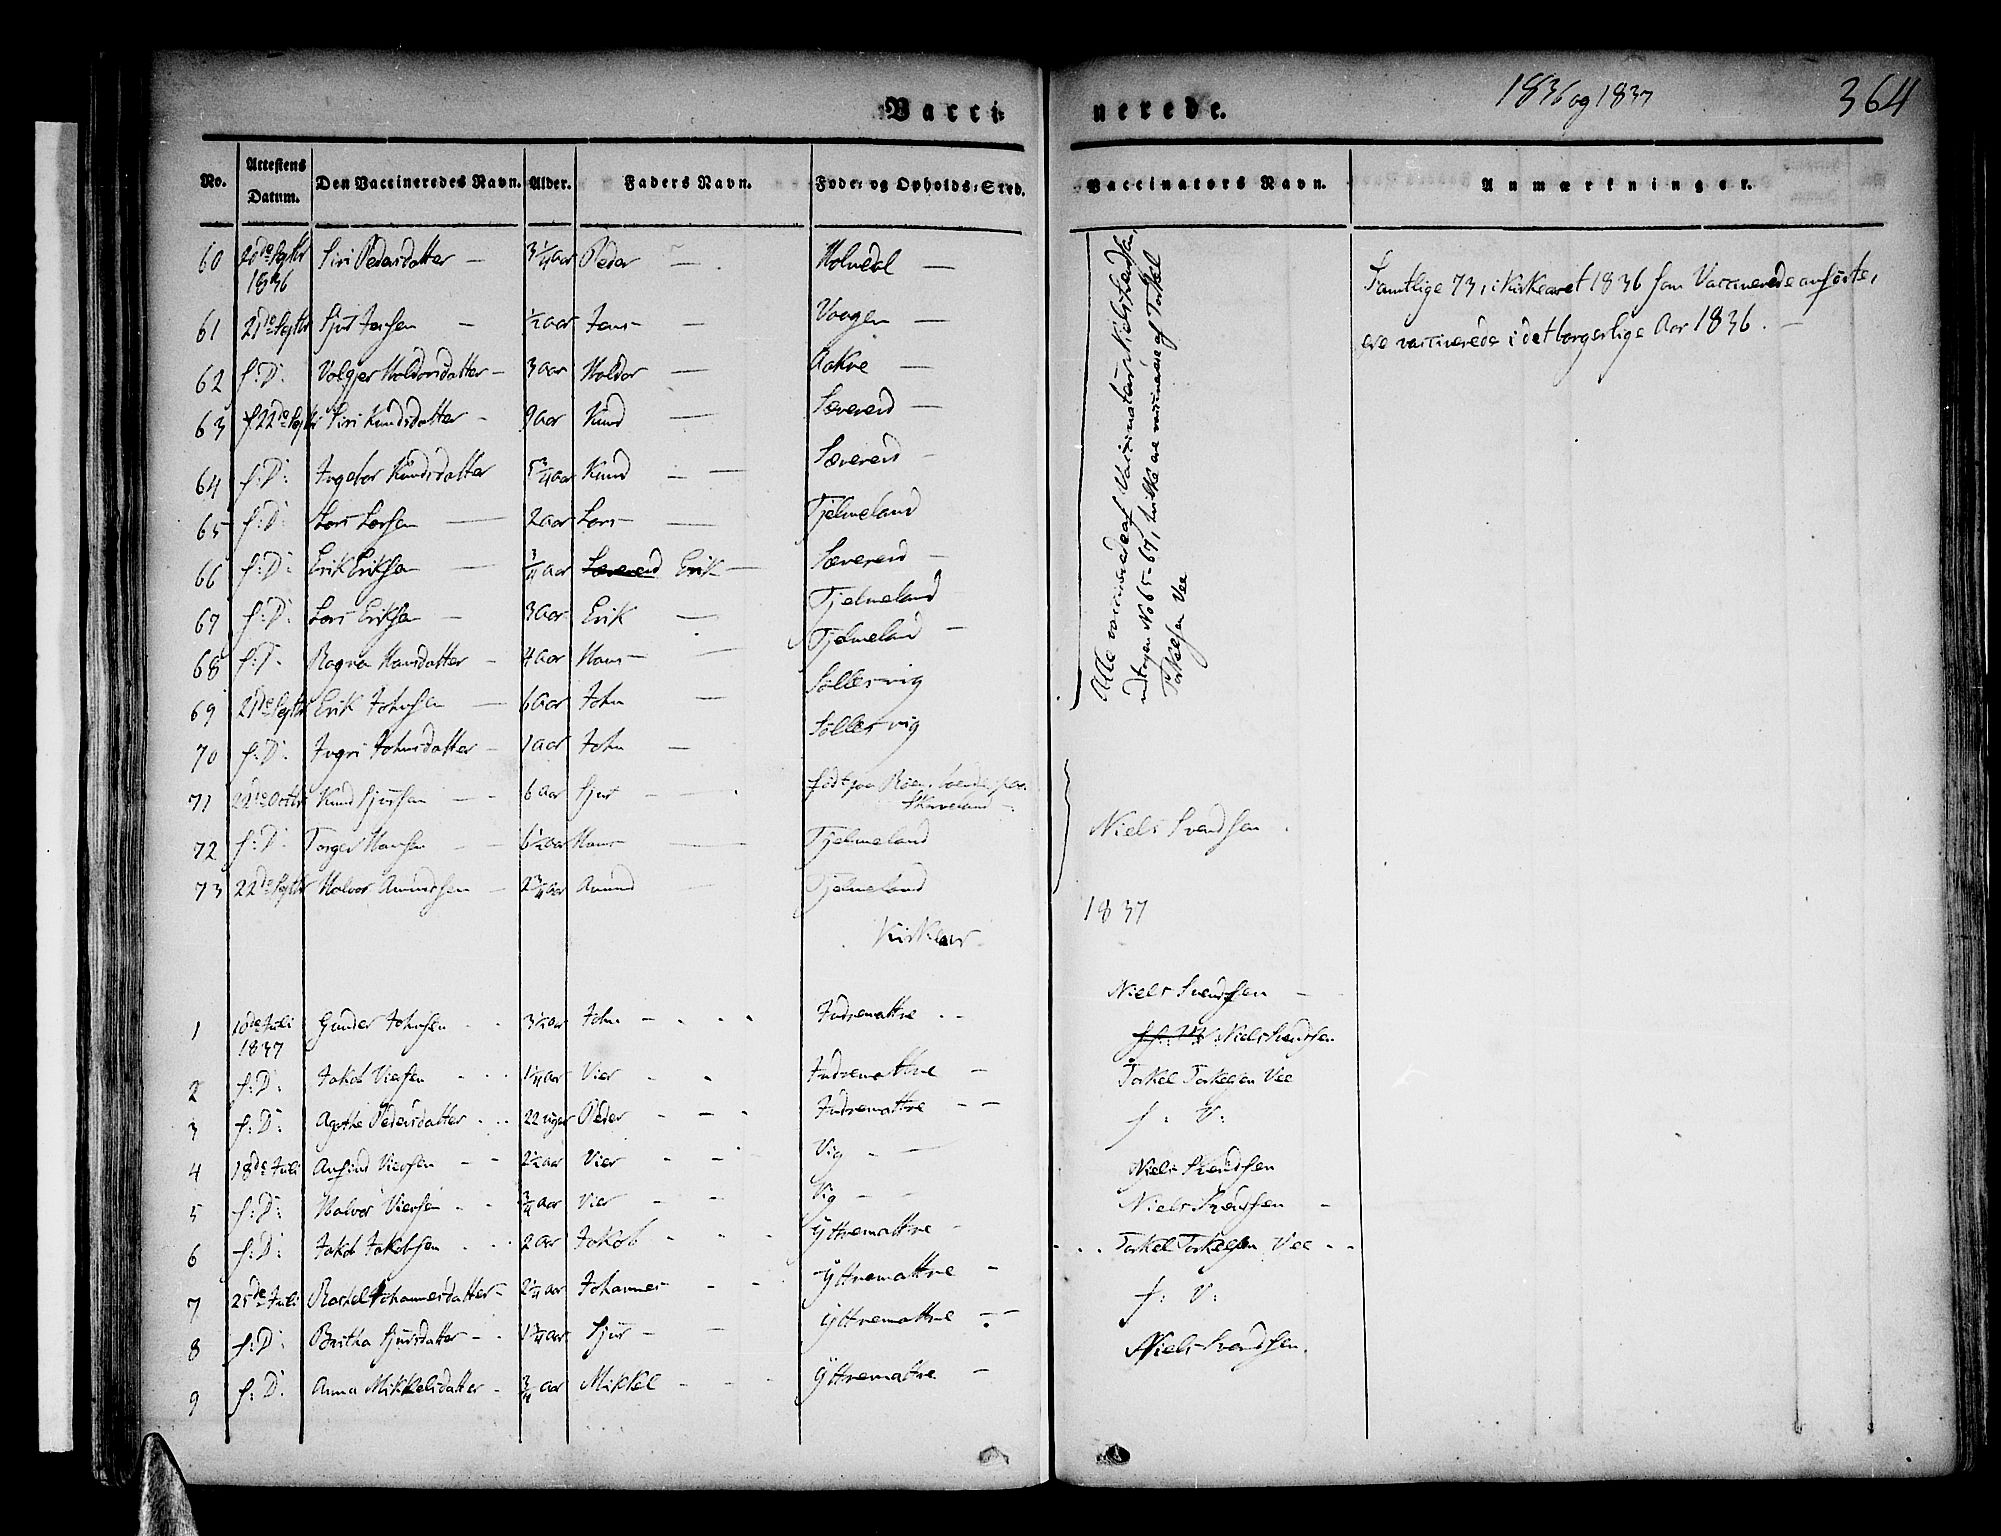 Vaccinerede.
1836 og 1837
364
No. Attestens Datum. Den Vaccineredes Navn. Alder. Faders Navn. Føde- og Opholds-Sted. Vaccinators Navn. Anmærkninger.
60 20de Septbr 1836 Siri Pedersdatter — 3 1/4 Aar Peder — Holmedal —
61 21de Septbr Sjur Jensen — 1/2 Aar Jens — Vaagen —
62 s: D: Valgjer Haldorsdatter — 3 Aar Haldor — Aakre —
63 22de Septbr Siri Knudsdatter — 9 Aar Knud — Sævereid —
64 s: D: Ingebor Knudsdatter 5 3/4 Aar Knud — Sævereid —
65 s: D: Lars Larsen — 2 Aar Lars — Tjelmeland
66 s: D: Erik Eriksen — 3/4 Aar Sævereid Erik — Sævereid —
67 s: D: Lars Eriksen — 3 Aar Erik — Tjelmeland —
68 s: D: Ragna Hansdatter — 4 Aar Hans — Tjelmeland —
69 21de Septbr Erik Johnsen — 6 Aar John — Sallesvig
70 s: D: Ingri Johnsdatter — 1 Aar John — Sallesvig
71 22de Octbr Knud Sjursen — 6 Aar Sjur — født paa
Skaveland —
72 s: D: Torger Hansen — 6 1/2 Aar Hans — Tjelmeland
73 22de Septbr Halvor Amundsen — 2 3/4 Aar Amund — Tjelmeland
Alle vaccinerede af Vaccinateur Niels Svendsen,
undtagen No 65-67, hvilke ere vaccinerede af Torkel
Torkelsen Vee
Niels Svendsen
Samtlige 73, i Kirkeaaret 1836 som Vaccinerede anførte,
ere vaccinerede i det borgerlige Aar 1836. —
Kirkeaar 1837
Niels Svendsen —
1 10de Juli 1837 Gunder Johnsen 3 1/2 Aar John — Indremattre Niels Svendsen
2 s: D: Jakob Viersen 1 1/4 Aar Vier Indremattre — Torkel Torkelsen Vee
3 s: D: Agathe Pedersdatter 22 Uger Peder Indremattre — — s: V:
4 18de Juli Amund Viersen — 2 1/2 Aar Vier Vig — Niels Svendsen
5 s: D: Halvor Viersen 3/4 Aar Vier Vig — Niels Svendsen —
6 s: D: Jakob Jakobsen 2 Aar Jakob Yttremattre — Torkel Torkelsen Vee — —
7 25de Juli Rachel Johannesdatter — 2 1/4 Aar Johannes Yttremattre — s: V:
8 s: D: Britha Sjursdatter — 1 3/4 Aar Sjur — Yttremattre — — Niels Svendsen.
9 s: D: Anna Mikkelsdatter — 3/4 Aar Mikkel Yttremattre —